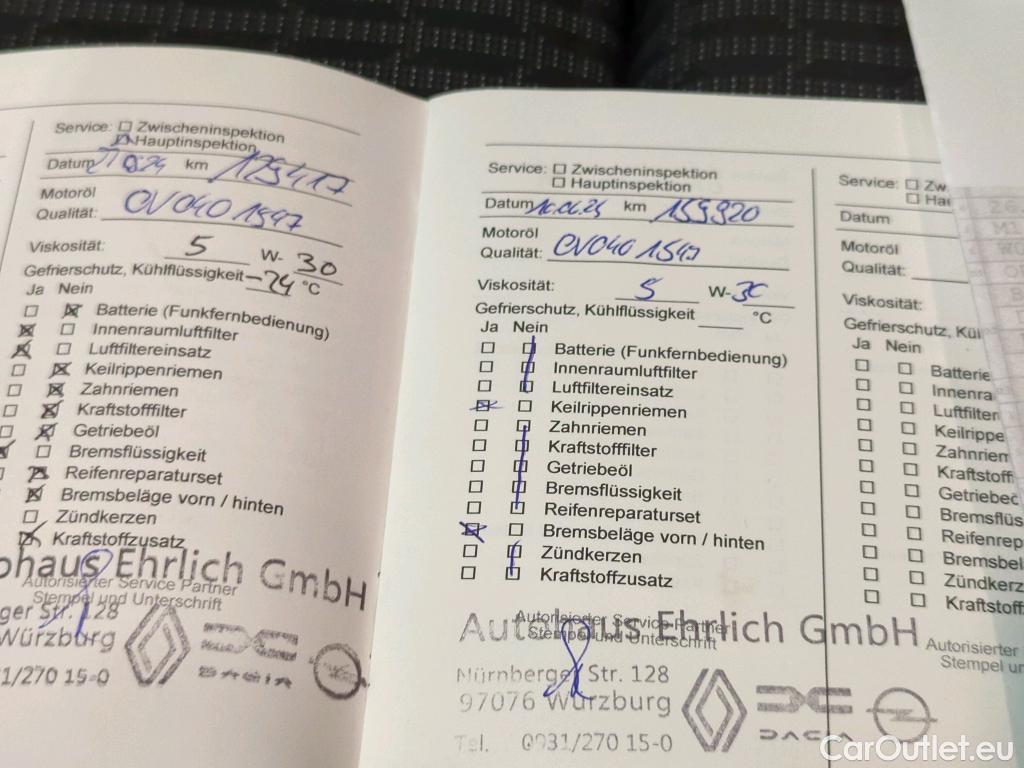 Service: Zwischeninspektion
Hauptinspektion
Datum km 129417
Motoröl
Qualität: OV040 1547
Viskosität: 5 W- 30
Gefrierschutz, Kühlflüssigkeit -24 °C
Ja Nein
Batterie (Funkfernbedienung)
Innenraumluftfilter
Luftfiltereinsatz
Keilrippenriemen
Zahnriemen
Kraftstofffilter
Getriebeöl
Bremsflüssigkeit
Reifenreparaturset
Bremsbeläge vorn / hinten
Zündkerzen
Kraftstoffzusatz
Ehrlich GmbH
Autorisierter Service Partner
Stempel und Unterschrift
Str. 128
Würzburg
1/270 15-0
Service: Zwischeninspektion
Hauptinspektion
Datum km 159920
Motoröl
Qualität: OV040 1547
Viskosität: 5 W-30
Gefrierschutz, Kühlflüssigkeit °C
Ja Nein
Batterie (Funkfernbedienung)
Innenraumluftfilter
Luftfiltereinsatz
Keilrippenriemen
Zahnriemen
Kraftstofffilter
Getriebeöl
Bremsflüssigkeit
Reifenreparaturset
Bremsbeläge vorn / hinten
Zündkerzen
Kraftstoffzusatz
Autorisierter Service Partner
Stempel und Unterschrift
Autohaus Ehrlich GmbH
Nürnberger Str. 128
97076 Würzburg
Tel. 0931/270 15-0
DACIA
Service: Zw
Hau
Datum
Motoröl
Qualität:
Viskosität:
Gefrierschutz, Kü
Ja Nein
Batterie
Innenra
Luftfilter
Keilrippe
Zahnriem
Kraftstoff
Getriebeö
Bremsflüs
Reifenrep
Bremsbel
Zündkerz
Kraftstoff
Autorisierter
Stempel un
CarOutlet.eu